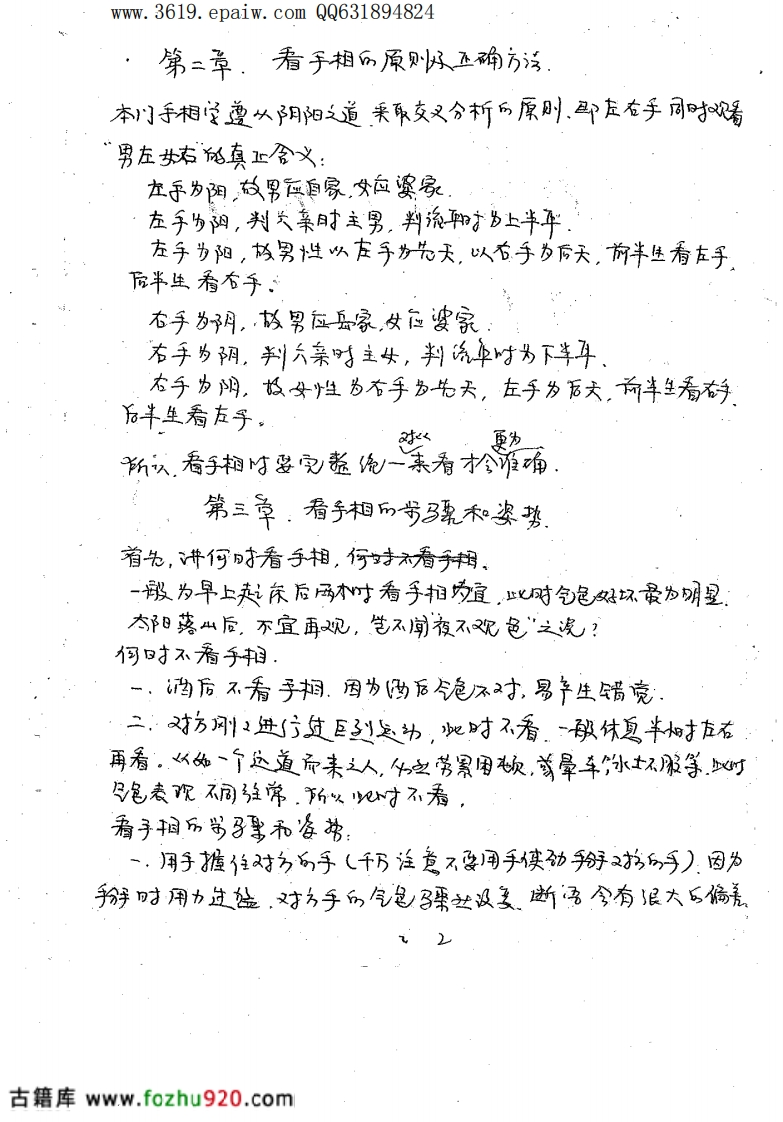 www.3619.epaiw.com QQ631894824
第二章. 看手相的原则及正确方法.
本门手相学遵从阴阳之道.采取交叉分析的原则.即左右手同时观看
"男左女右"的真正含义:
左手为阳,故男应自家,女应婆家.
左手为阳,判六亲时主男,判流年时为上半年.
左手为阳,故男性以左手为先天,以右手为后天,前半生看左手,
后半生看右手。
右手为阴,故男应岳家,女应婆家.
右手为阴,判六亲时主女,判流年时为下半年.
右手为阴,故女性为右手为先天,左手为后天,前半生看右手,
后半生看左手。
所以,看手相时要完整统一来看才会准确.
更为
第三章.看手相的步骤和姿势.
首先,讲何时看手相,何时不看手相.
一般为早上起床后两小时看手相为宜,此时气色好坏最为明显.
太阳落山后,不宜再观,岂不闻"夜不观色"之说?
何时不看手相.
一.酒后不看手相.因为酒后气色不对,易产生错觉.
二.对方刚刚进行过巨烈运动,此时不看.一般休息半小时左右
再看。比如一个远道而来之人,劳累困顿,或晕车、水土不服等.此时
气色表现不同往常.所以此时不看.
看手相的步骤和姿势:
一.用手握住对方的手(千万注意不要用手使劲掰对方的手).因为
掰时用力过猛.对方手的气色骤然改变.断语会有很大的偏差.
2
古籍库 www.fozhu920.com